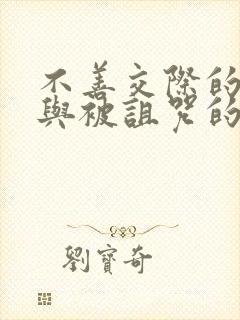 不善交際的
與被詛咒的
劉寶奇